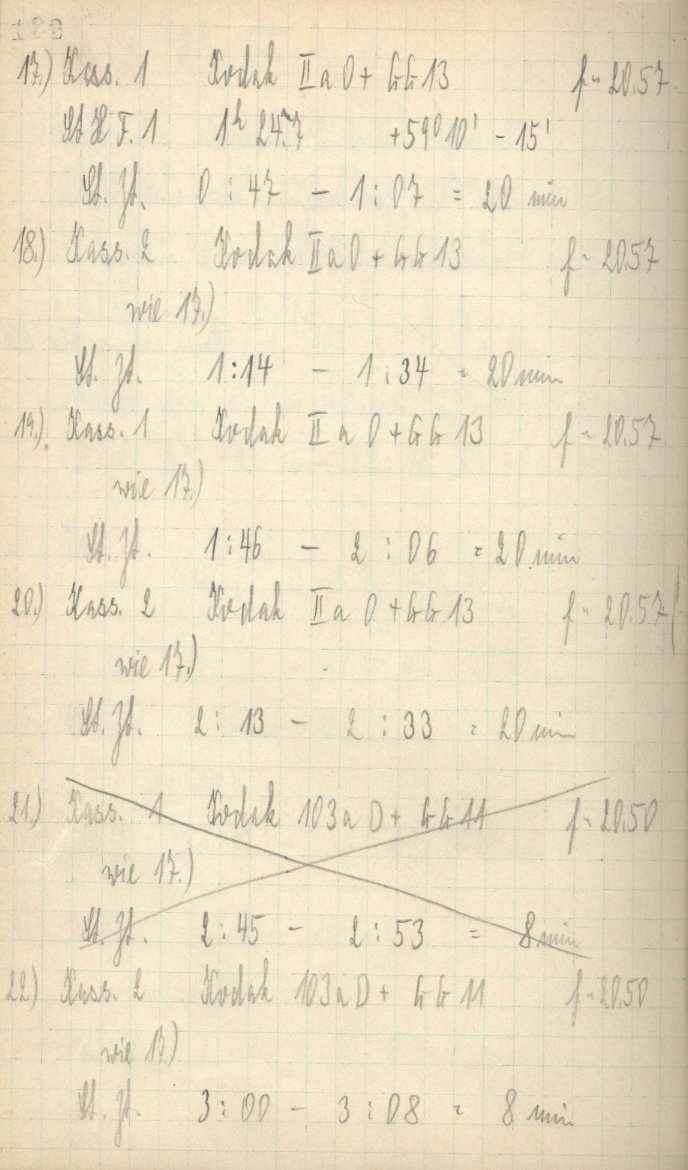 17.) Kass. 1 Kodak II a O + GG 13 f = 20.57
St H F. 1 1h 24.m7 +59° 10' - 15'
St. Zt. 0 : 47 - 1 : 07 = 20 min
18.) Kass. 2 Kodak II a O + GG 13 f = 20.57
wie 17.)
St. Zt. 1:14 - 1:34 = 20 min
19.) Kass. 1 Kodak II a O + GG 13 f = 20.57
wie 17.)
St. Zt. 1:46 - 2 : 06 = 20 min
20.) Kass. 2 Kodak II a O + GG 13 f = 20.57
wie 17.)
St. Zt. 2 : 13 - 2 : 33 = 20 min
21.) Kass. 1 Kodak 103 a D + GG 11 f = 20.50
wie 17.)
St. Zt. 2:45 - 2:53 = 8 min
22.) Kass. 2 Kodak 103 a D + GG 11 f = 20.50
wie 17.)
St. Zt. 3 : 00 - 3 : 08 = 8 min